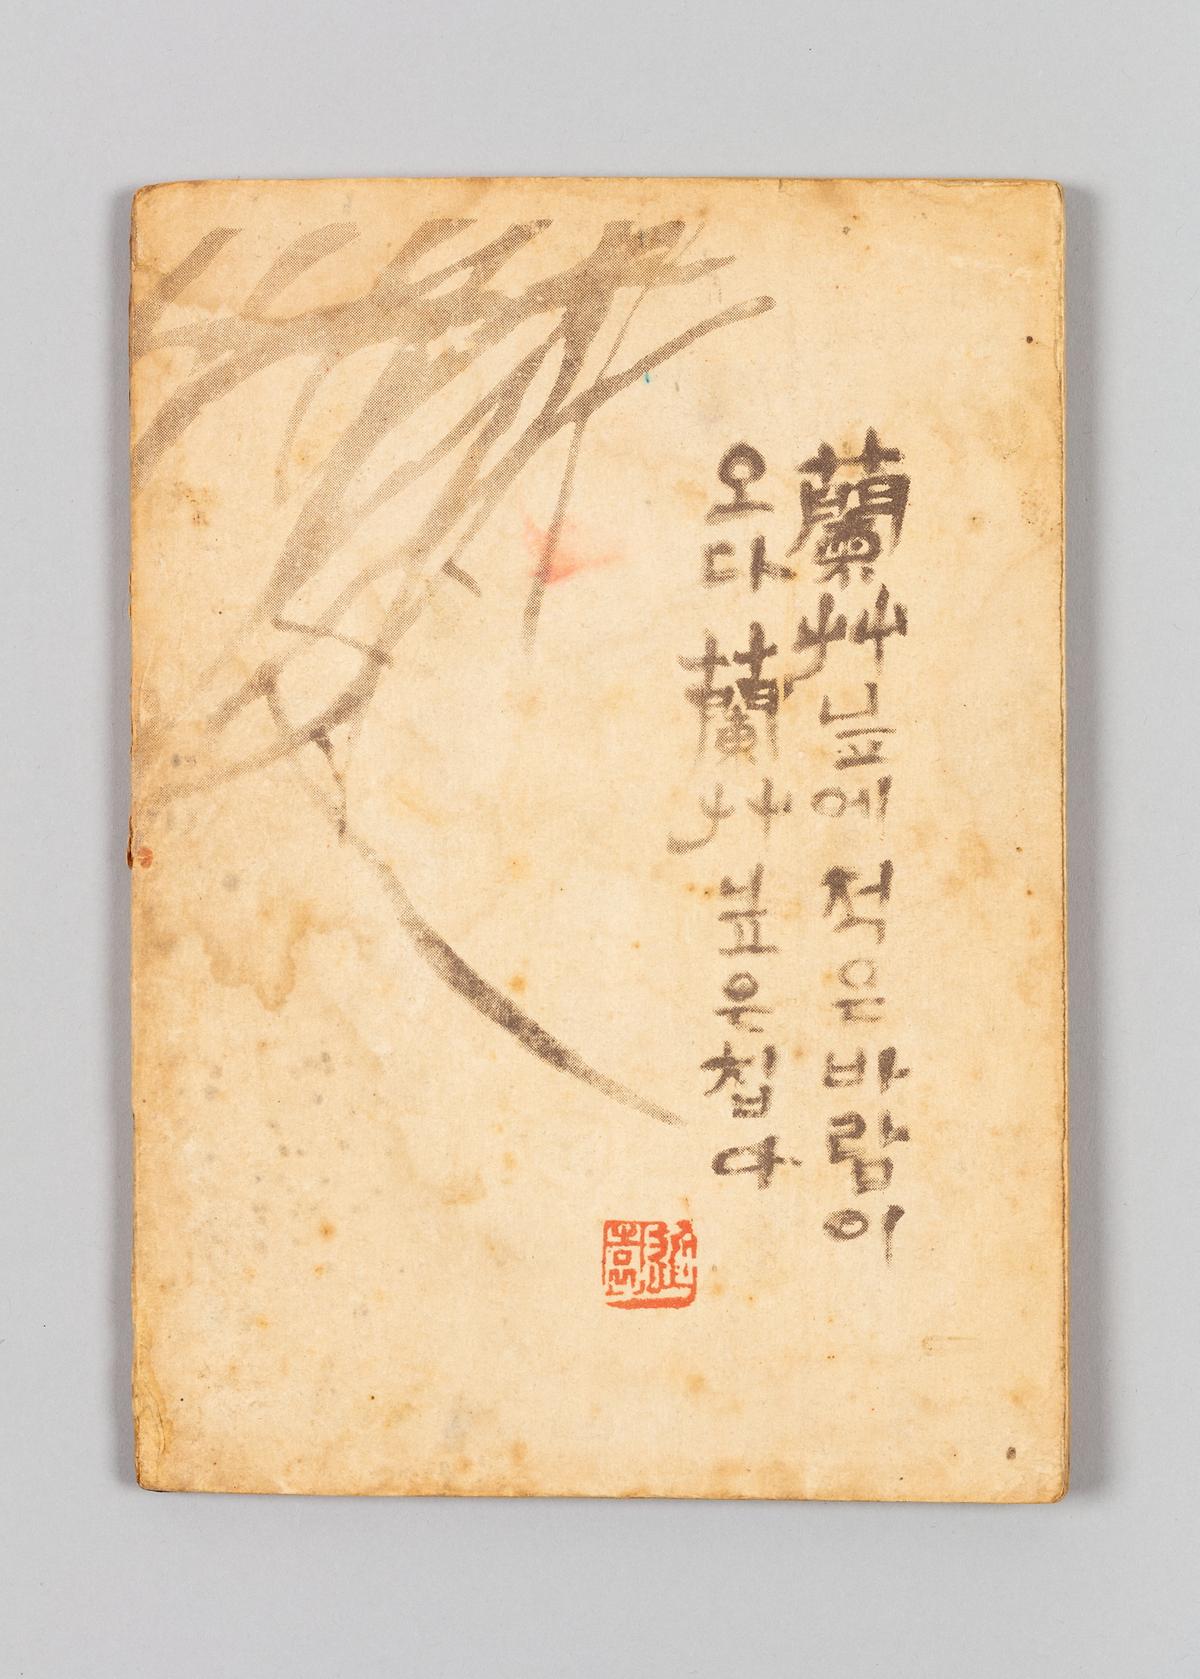 蘭艸닢에 적은 바람이
오다 蘭艸닢은 칩다